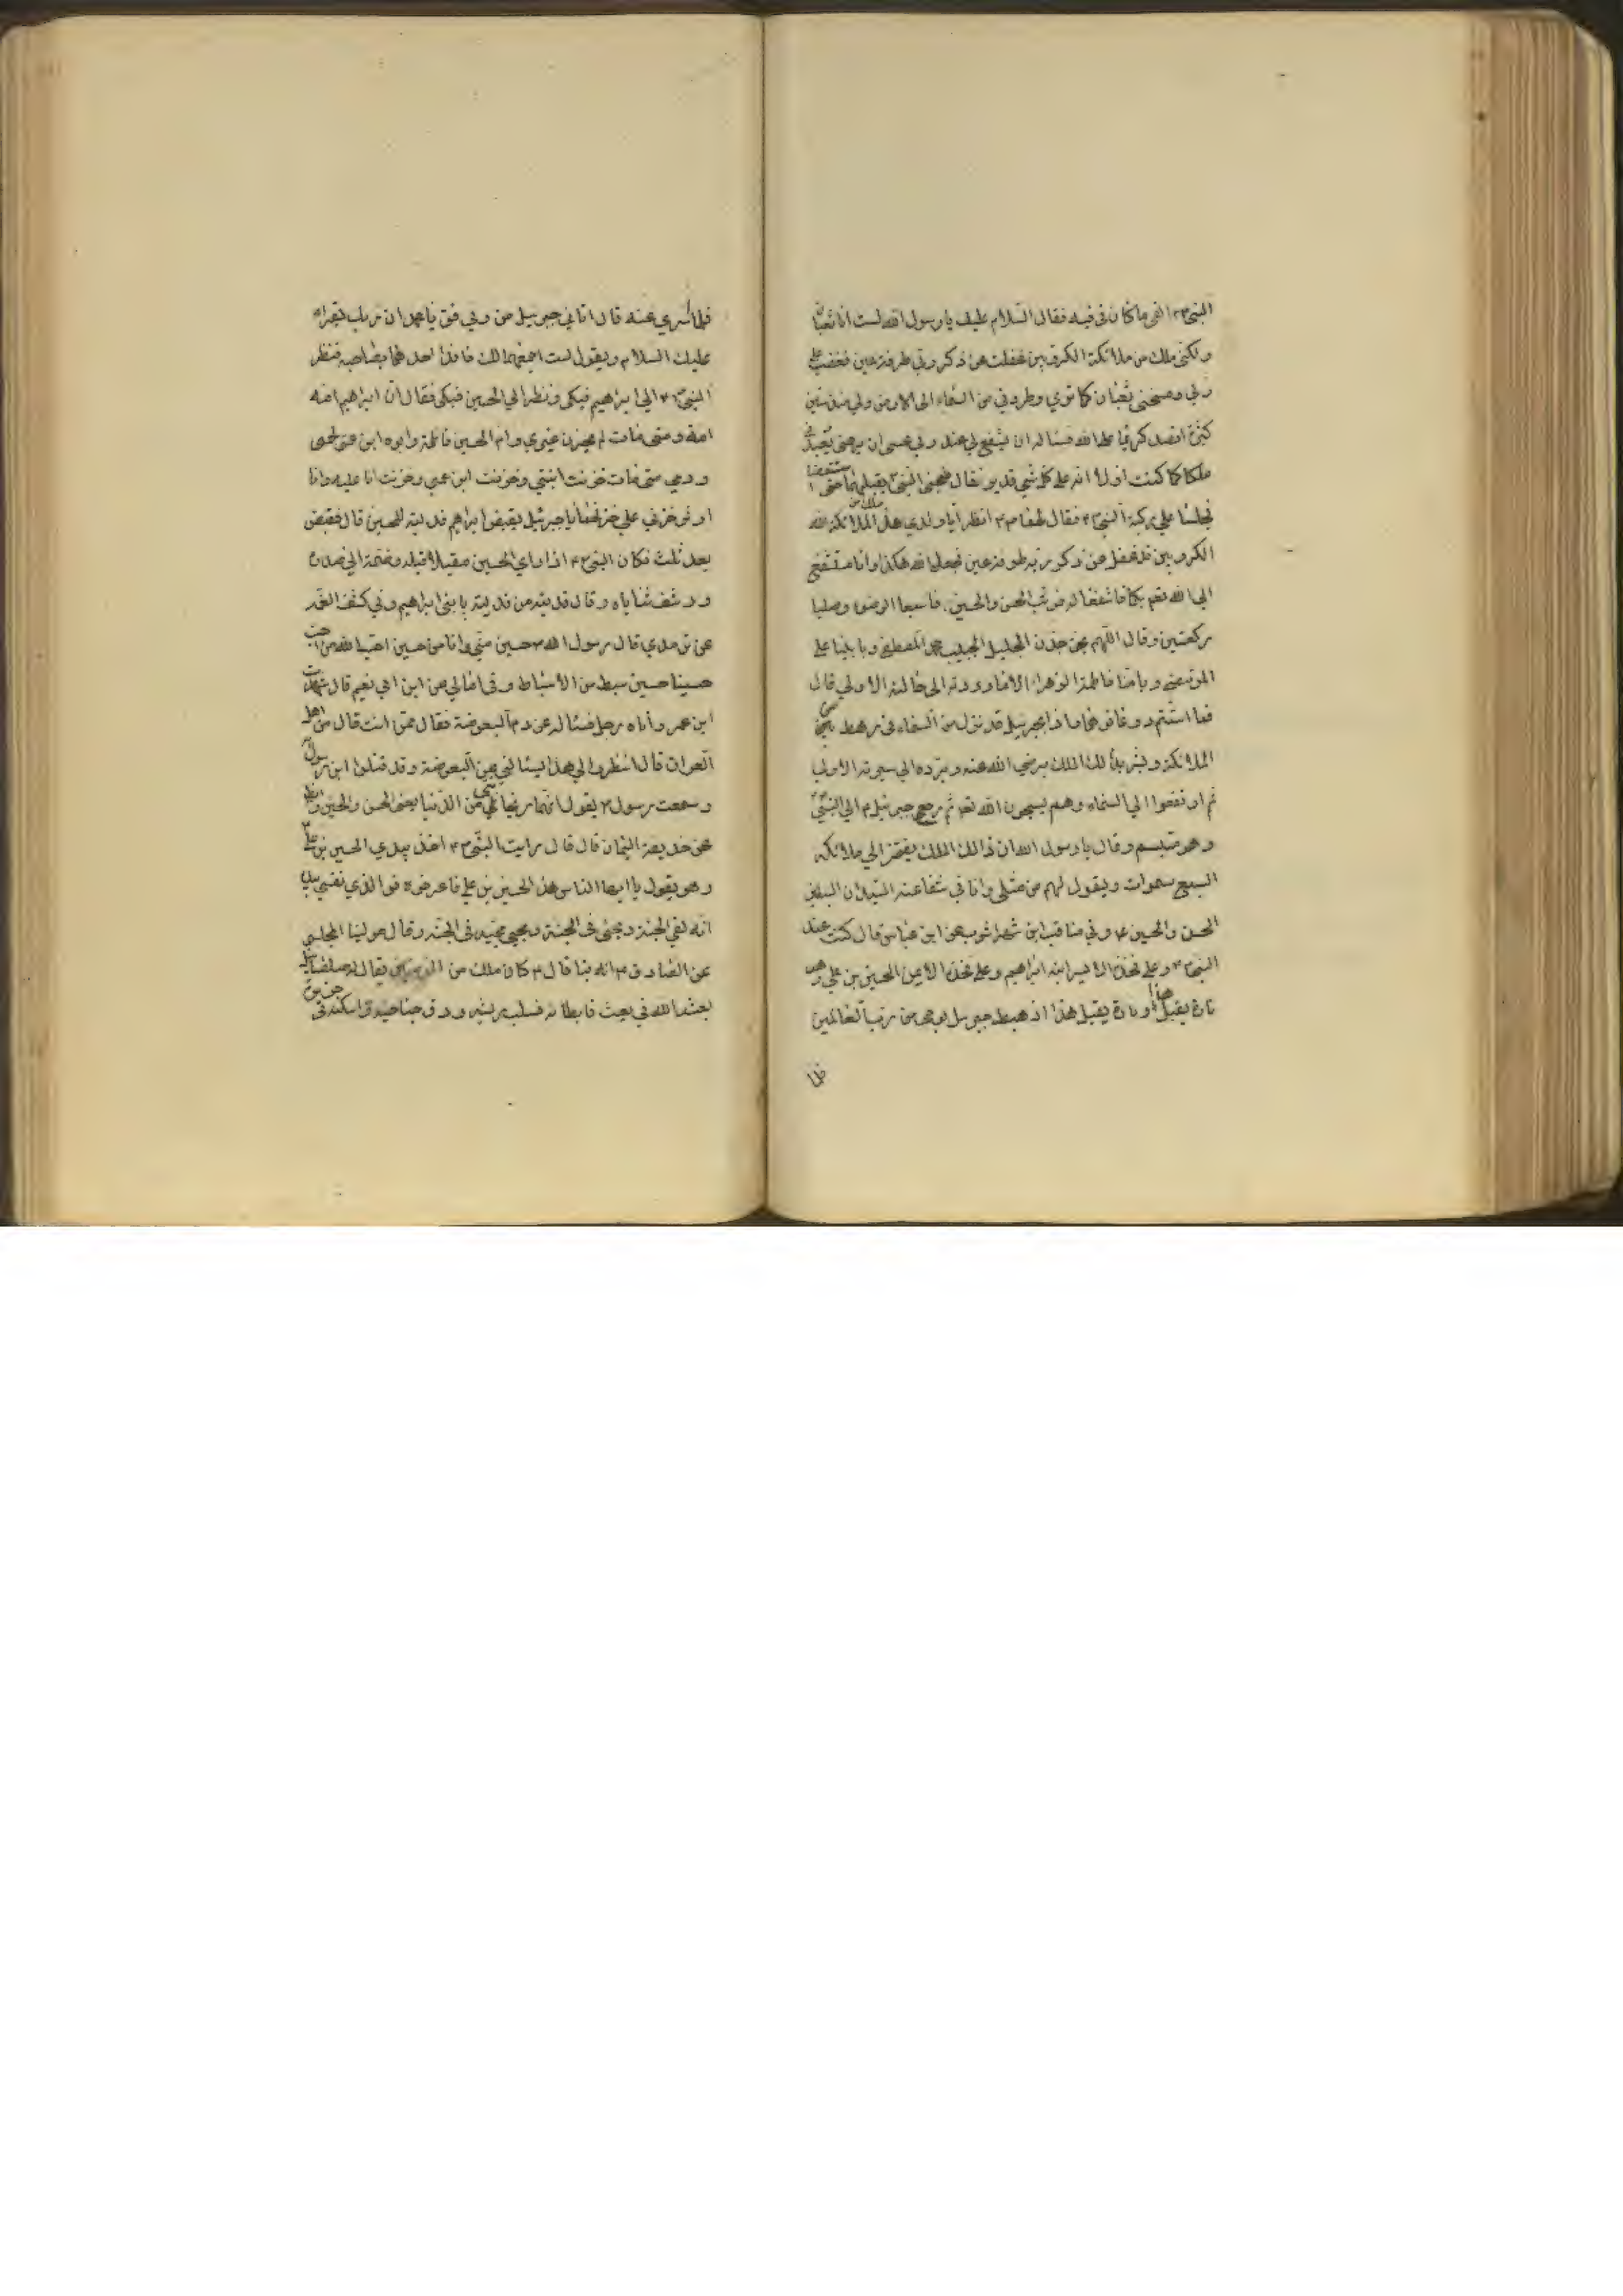 النبي ٣٤ القى ما كان في فيه فقال السلام عليك يا رسول الله لست انا ثعبانا
ولكنى ملك من ملائكة الكروبين غفلت عن ذكر ربي طرفة عين فغضب على
ربي ومسخني ثعبان كما تري وطردني من السماء الى الارض ولي منذ سنين
كثيرة اقصد كريما على الله فساله ان يشفع لي عند ربي عسى ان يرحمني ويعيدني
ملكا كما كنت اولا انه على كل شي قدير فقال فجثى النبي يقبلهما حتى استيقظا
فجلسا على ركبة النبي ٣٤ فقال لهما ٣٤ انظرا يا ولدي هذا ملك من الملائكة الله
الكروبين قد غفل عن ذكر ربه طرفة عين فجعله الله هكذا وانا مستشفع
الى الله تعم بكما فاشفعا له فوثب الحسن والحسين فاسبغا الوضوء وصليا
ركعتين وقال اللهم بحق جدنا الجليل الحبيب محمد المصطفى وبابينا على
المرتضى وبامنا فاطمة الزهراء الاما رددته الى حالته الاولي قال
فما استتم دعائهما فاذا بجبرئيل قد نزل من السماء في رهط من
الملائكة وبشر ذلك الملك برضي الله عنه وبرده الي سيرته الاولى
ثم ارتفعوا الي السماء وهم يسبحون الله تعم ثم رجع جبرئيل م الي النبي
وهو متبسم وقال يا رسول الله ان ذالك الملك يفتخر الي ملائكة
السبع سموات ويقول لهم من مثلى وانا في شفاعة السيدان السبطين
الحسن والحسين ٤ وفي مناقب ابن شهراشوب عن ابن عباس قال كنت عند
النبي ٣٤ وعلى فخذه الايسر ابنه ابراهيم وعلى فخذه الايمن الحسين بن علي وهو
تارة يقبل هذا وتارة يقبل هذا اذ هبط جبرئيل بوحى من رب العالمين
فلما
فلما سري عنه قال اتاني جبرئيل من ربي فق يا محمد ان ربك يقراء
عليك السلام ويقول لست اجمعهما لك فافد احدهما بصاحبه فنظر
النبي ٣٤ الي ابراهيم فبكى ونظر الي الحسين فبكى فقال ان ابراهيم امه
امة ومتى مات لم يحزن غيري وام الحسين فاطمة وابوه ابن عمى لحمى
ودمي متى مات حزنت ابنتي وحزنت ابن عمي وحزنت انا عليه وانا
اوثر حزني علي حزنهما يا جبرئيل يقبض ابراهيم فديته للحسين قال فقبض
بعد ثلث فكان النبي ٣٤ اذا راي الحسين مقبلا قبله وضمه الي صدره
ورشف ثناياه وقال فديته من فديته بابني ابراهيم وفي كشف الغمه
قال رسول الله حسين مني وانا من حسين احب الله من احب
حسينا حسين سبط من الاسباط وفي امالي عن ابن ابي نعيم قال شهدت
ابن عمر واتاه رجل فساله عن دم البعوضة فقال ممن انت قال من اهل
العراق قال انظروا الي هذا يسالني عن البعوضة وقد قتلوا ابن رسول
وسمعت رسول ٣ يقول انهما ريحانتي من الدنيا يعنى الحسن والحسين
عن حذيفة اليمان قال قال رايت النبي ٣٤ اخذ بيدي الحسين بن علي
وهو يقول يا ايها الناس هذا الحسين بن علي فاعرفوه فوالذي نفسي بيده
انه لفي الجنة ومحبي في الجنة ومحبي محبيه في الجنة وقال مولينا المجلسي
عن الصادق ٣ انه قال ٣ كان ملك من يقال له صلصائيل
بعثه الله في بعث فابطا فسلبه ريشه ودق جناحيه واسكنه في